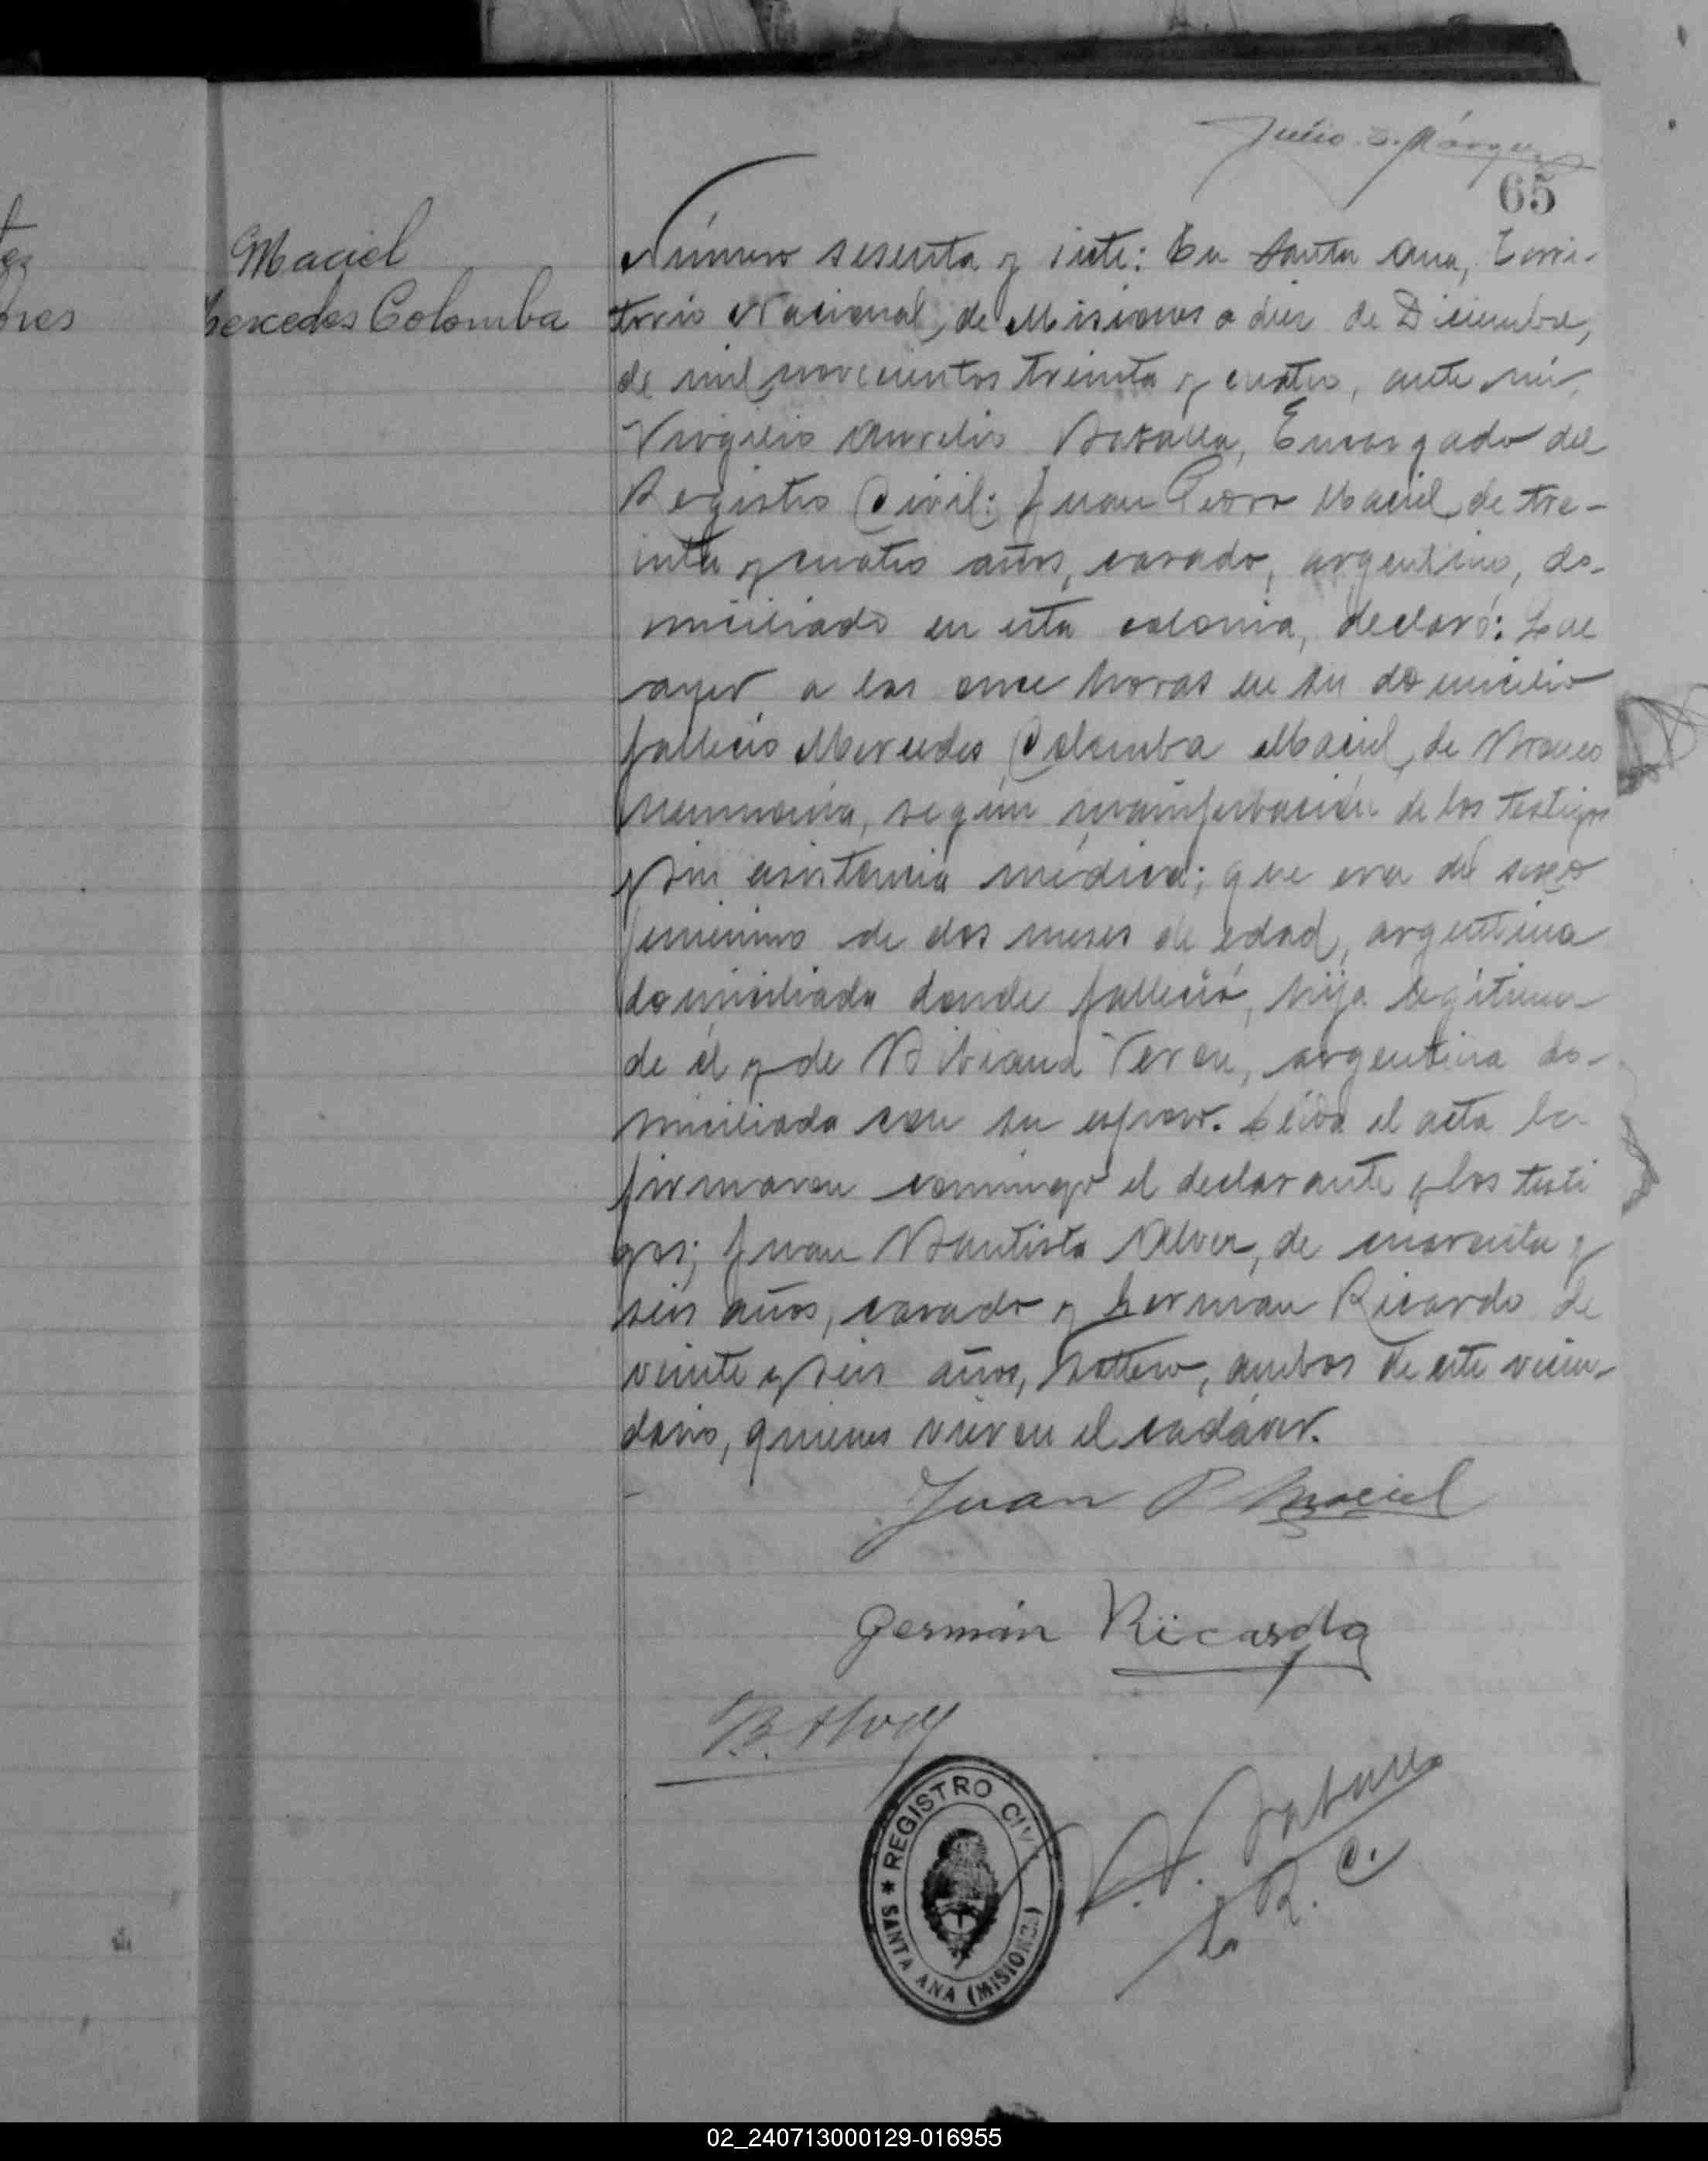 Julio
65
Maciel
Mercedes Colomba
tes
ores
Número sesenta y siete: En Santa Ana, Terri-
torio Nacional de Misiones a diez de Diciembre,
de mil novecientos treinta y cuatro, ante mí,
Virgilio Aurelio Encargado del
Registro Civil: Juan Pedro Maciel de tre-
inta y cuatro años, casado, argentino, do-
miciliado en esta colonia, declaró: Que
ayer a las once horas en su domicilio
falleció Mercedes Colomba Maciel, de Bronco
neumonía, según manifestación de los testigos
y sin asistencia médica; que era del sexo
femenino de dos meses de edad, argentina
domiciliada donde falleció, hija legítima
de él y de Bibiana argentina do-
miciliada con su esposo. Leída el acta la
firmaron conmigo el declarante y los testi
gos; Juan Bautista de cuarenta y
seis años, casado y Germán Ricardo de
veinte y seis años, soltero, ambos de este vecin-
dario, quienes vieron el cadáver.
Juan P Maciel
Germán Ricardo
B.
R. C.
REGISTRO CIVIL
* SANTA ANA (MISIONES)
02_240713000129-016955